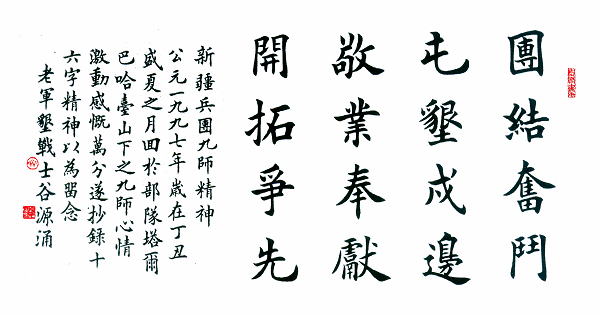 團結奮鬥
屯墾戍邊
敬業奉獻
開拓爭先
新疆兵團九師精神
公元一九九七年歲在丁丑
盛夏之月回於部隊塔爾
巴哈臺山下之九師心情
激動感慨萬分遂抄錄十
六字精神以為留念
老軍墾戰士谷源涌